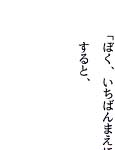 「ぼく、いちばんまえに
すると、